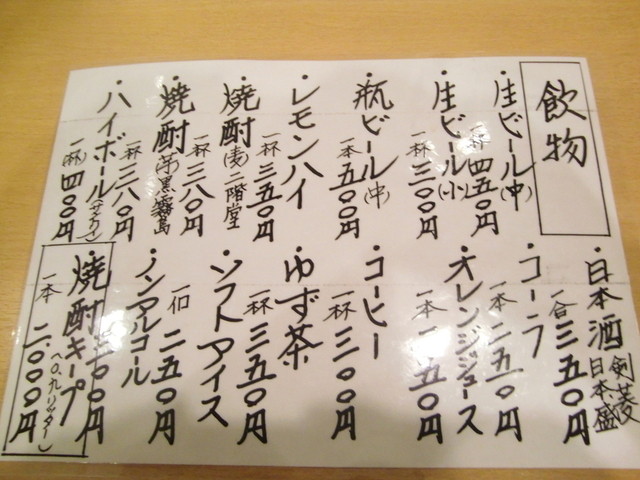 飲物
・生ビール(中)
一杯 四五〇円
・生ビール(小)
一杯 三〇〇円
・瓶ビール(中)
一本 五〇〇円
・レモンハイ
一杯 三五〇円
・焼酎(麦)二階堂
一杯 三八〇円
・焼酎(芋)黒霧島
一杯 三八〇円
・ハイボール
一杯 四〇〇円
・日本酒 剣菱
日本盛
一合 三五〇円
・コーラ
一本 二五〇円
・オレンジジュース
一本 二五〇円
・コーヒー
一杯 三〇〇円
・ゆず茶
一杯 三五〇円
・ソフトアイス
二五〇円
・ノンアルコール
〇〇円
焼酎キープ
(〇.九リッター)
一本 二.〇〇〇円